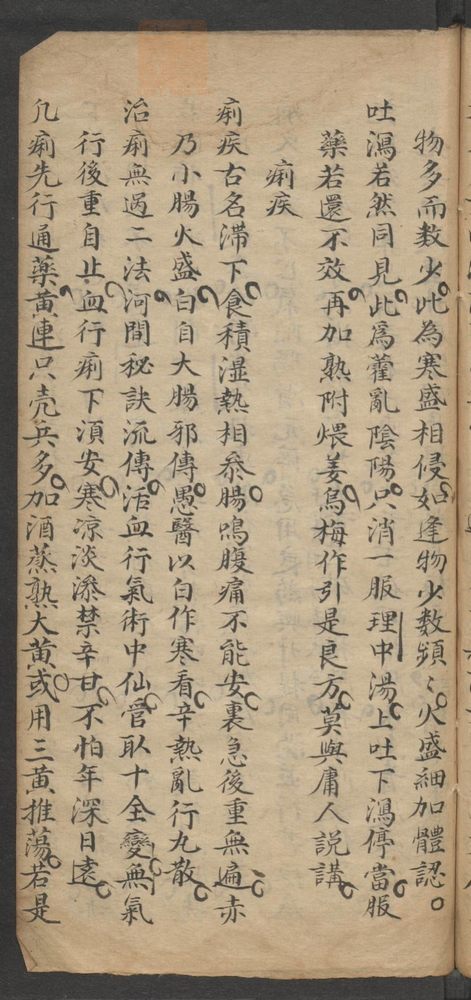 物多而数少。此為寒盛相侵。如逢物少数頻〻。火盛細加體認。
吐瀉若然同見。此為藿亂陰陽。只消一服理中湯。上吐下瀉停當。服
藥若還不效。再加熟附煨姜。烏梅作引是良方。莫與庸人説講。
痢疾
痢疾古名滯下。食積湿熱相叅。腸鳴腹痛不能安。裏急後重無遍。赤
乃小腸火盛。白自大腸邪傳。愚醫以白作寒看。辛熱亂行丸散。
治痢無過二法。河間秘訣流傳。活血行氣術中仙。管取十全變。無氣
行後重自止。血行痢下湏安。寒凉淡滲禁辛甘。不怕年深日遠。
凡痢先行通藥。黄連只壳兵多。加酒蒸熟大黄。或用三黄推蕩。若是